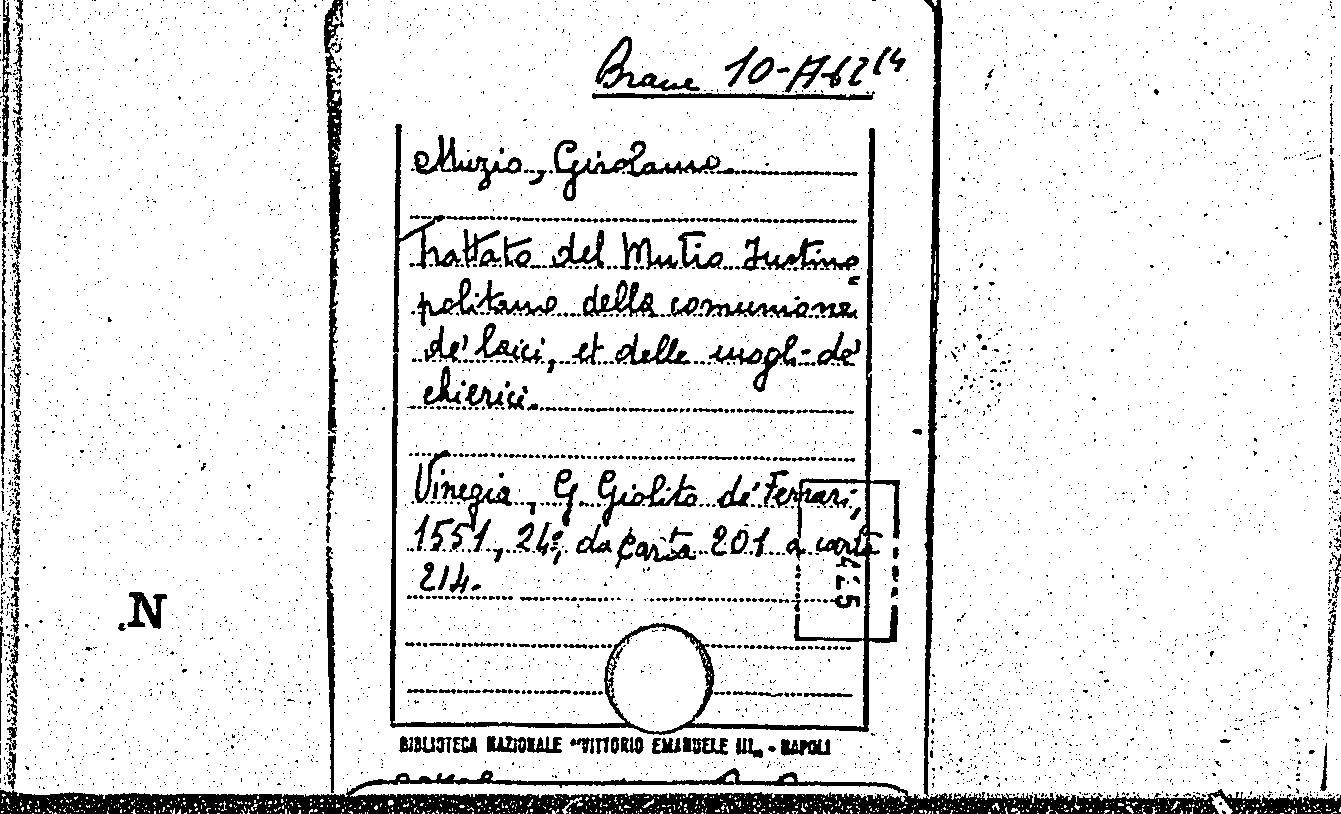 Branc 10-A-62¹⁴
Muzio, Girolamo.
Trattato del Mutio Justino=
politano della comunione
de' laici, et delle mogl- de'
chierici.
Vinegia, G. Giolito de' Ferrari,
1551, 24º, da carta 201 a carta
214.
425
.N
BIBLIOTECA NAZIONALE "VITTORIO EMANUELE III„ - NAPOLI